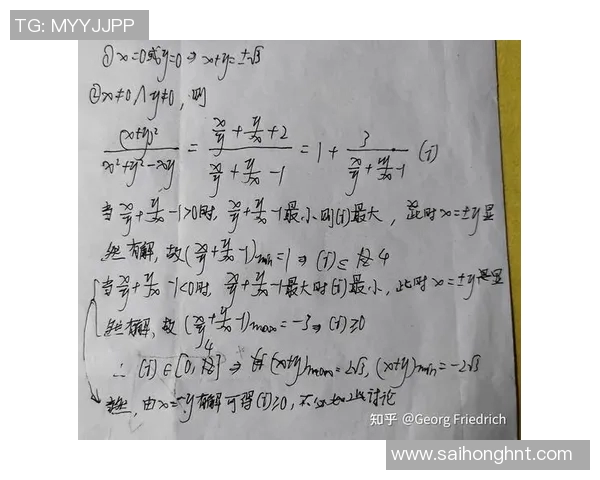 TG: MYYJJPP
① x=0或y=0 ⇒ x+y=±√3
② x≠0 ∧ y≠0, 则
(x+y)²/(x²+y²-xy) = (x/y + y/x + 2)/(x/y + y/x - 1) = 1 + 3/(x/y + y/x - 1) (i)
当 x/y + y/x - 1>0时, x/y + y/x - 1最小则(i)最大, 此时 x=±y显
然有解, 故(x/y + y/x - 1)min=1 ⇒ (i)≤4
当 x/y + y/x - 1<0时, x/y + y/x - 1最大时(i)最小, 此时 x=±y显
然有解, 故 (x/y + y/x - 1)max=-3 ⇒ (i)≥0
∴ (i)∈[0,4] ⇒ (x+y)max=2√3, (x+y)min=-2√3
由x=-y有解可得(i)≥0, 不 讨论
知乎 @Georg Friedrich
www.saihonghnt.com